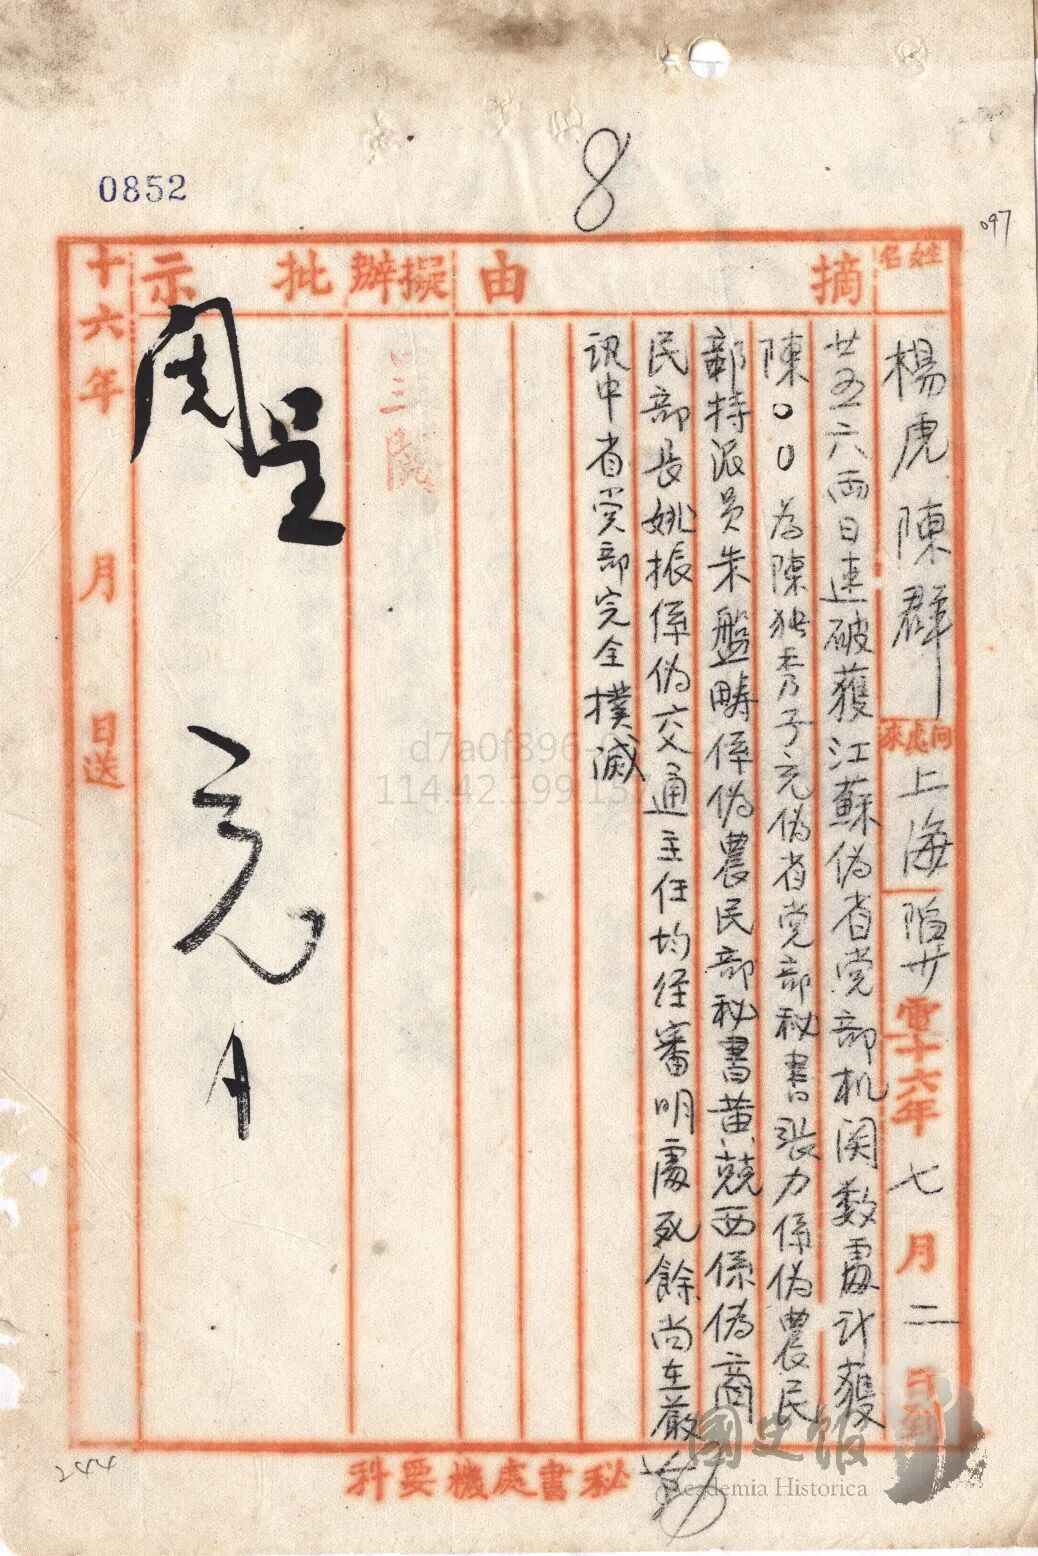 8
0852
097
姓名 楊虎陳群 何處來 上海 陷廿 電 十六年七月二日到
摘由
廿五六兩日連破獲江蘇偽省党部机関数處計獲
陳〇〇為陳独秀子充偽省党部秘書張力係偽農民
部特派員朱盤疇係偽農民部秘書黃兢西係偽商
民部長姚振係偽交通主任均经審明處死餘尚在嚴
訊中省党部完全撲滅
擬辦
呈閱
批示
十六年 月 日送
秘書處機要科
244
國史館
Academia Historica
d7a0f896-
114.42.199.137